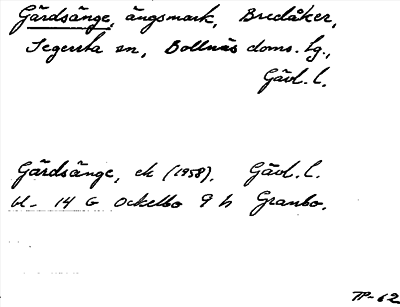 Gärdsänge, ängsmark, Bredåker,
Segersta sn, Bollnäs doms. hg.,
Gävl. l.
Gärdsänge, ek (1958). Gävl. l.
bl. 14 G Ockelbo 9 h Granbo.
TP-62